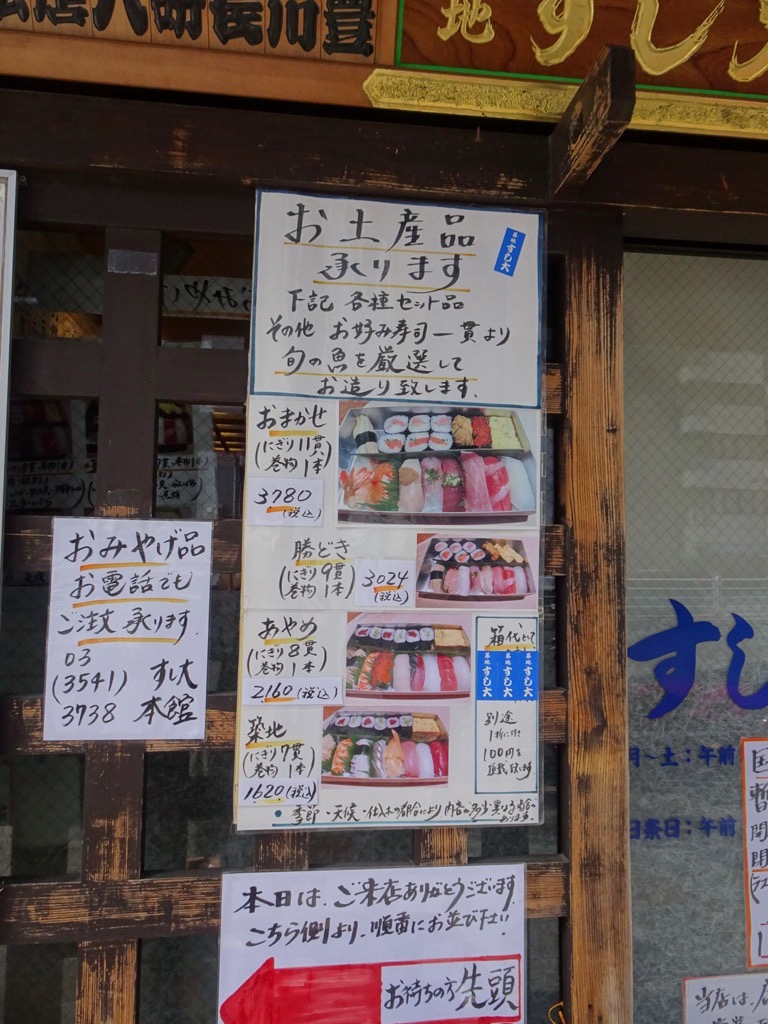 豊川長研
地 すし大
お土産品
承ります
築地 すし大
下記 各種セット品
その他 お好み寿司一貫より
旬の魚を厳選して
お造り致します.
おまかせ
(にぎり11貫
巻物 1本)
3780
(税込)
勝どき
(にぎり9貫
巻物 1本)
3024
(税込)
あやめ
(にぎり8貫
巻物 1本)
2160(税込)
築地
(にぎり7貫
巻物 1本)
1620(税込)
箱代として
築地 すし大
築地 すし大
築地 すし大
別途
1折に付き
100円を
頂戴致します
• 季節・天候・仕入れの都合により内容が多少異なる場合が
あります
おみやげ品
お電話でも
ご注文 承ります.
03
(3541) すし大
3738 本館
本日は、ご来店ありがとうございます.
こちら側より、順番にお並び下さい
お待ちの方 先頭
すし
月〜土：午前
日祭日：午前
当店は、